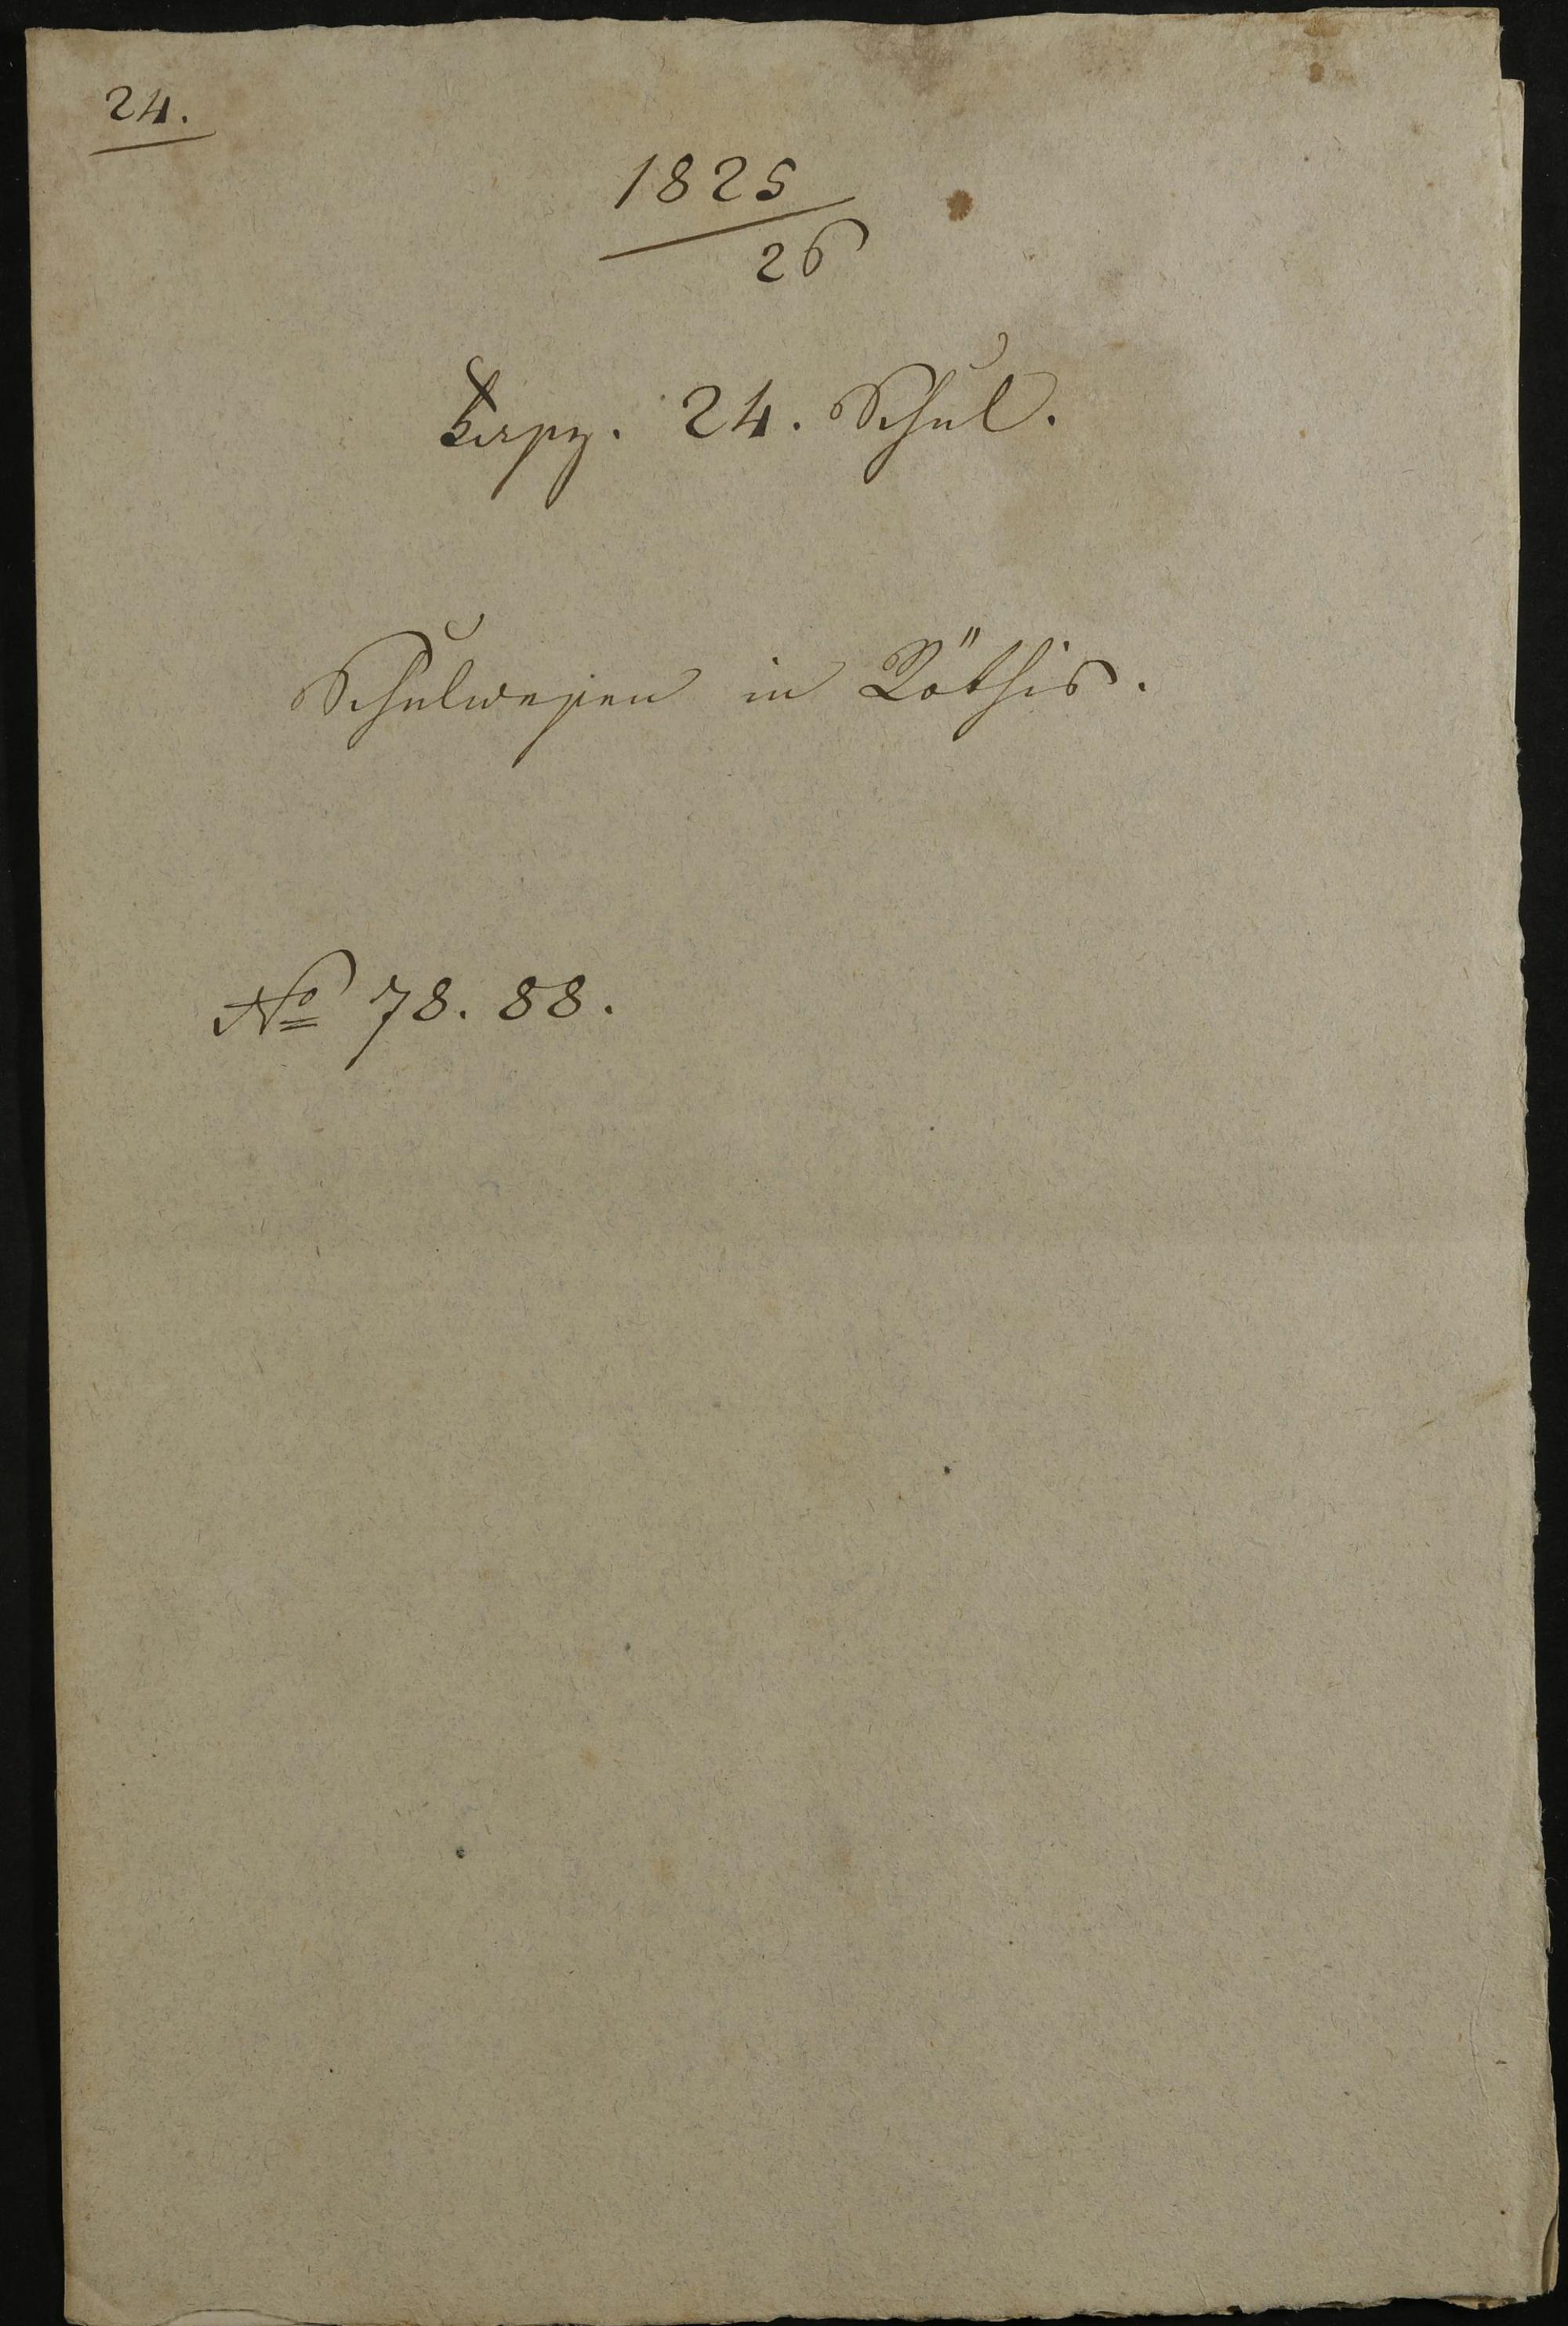 24.
1825
26
Fasz. 24. Schul.
Schulwesen in Röthis.
No 78. 88.